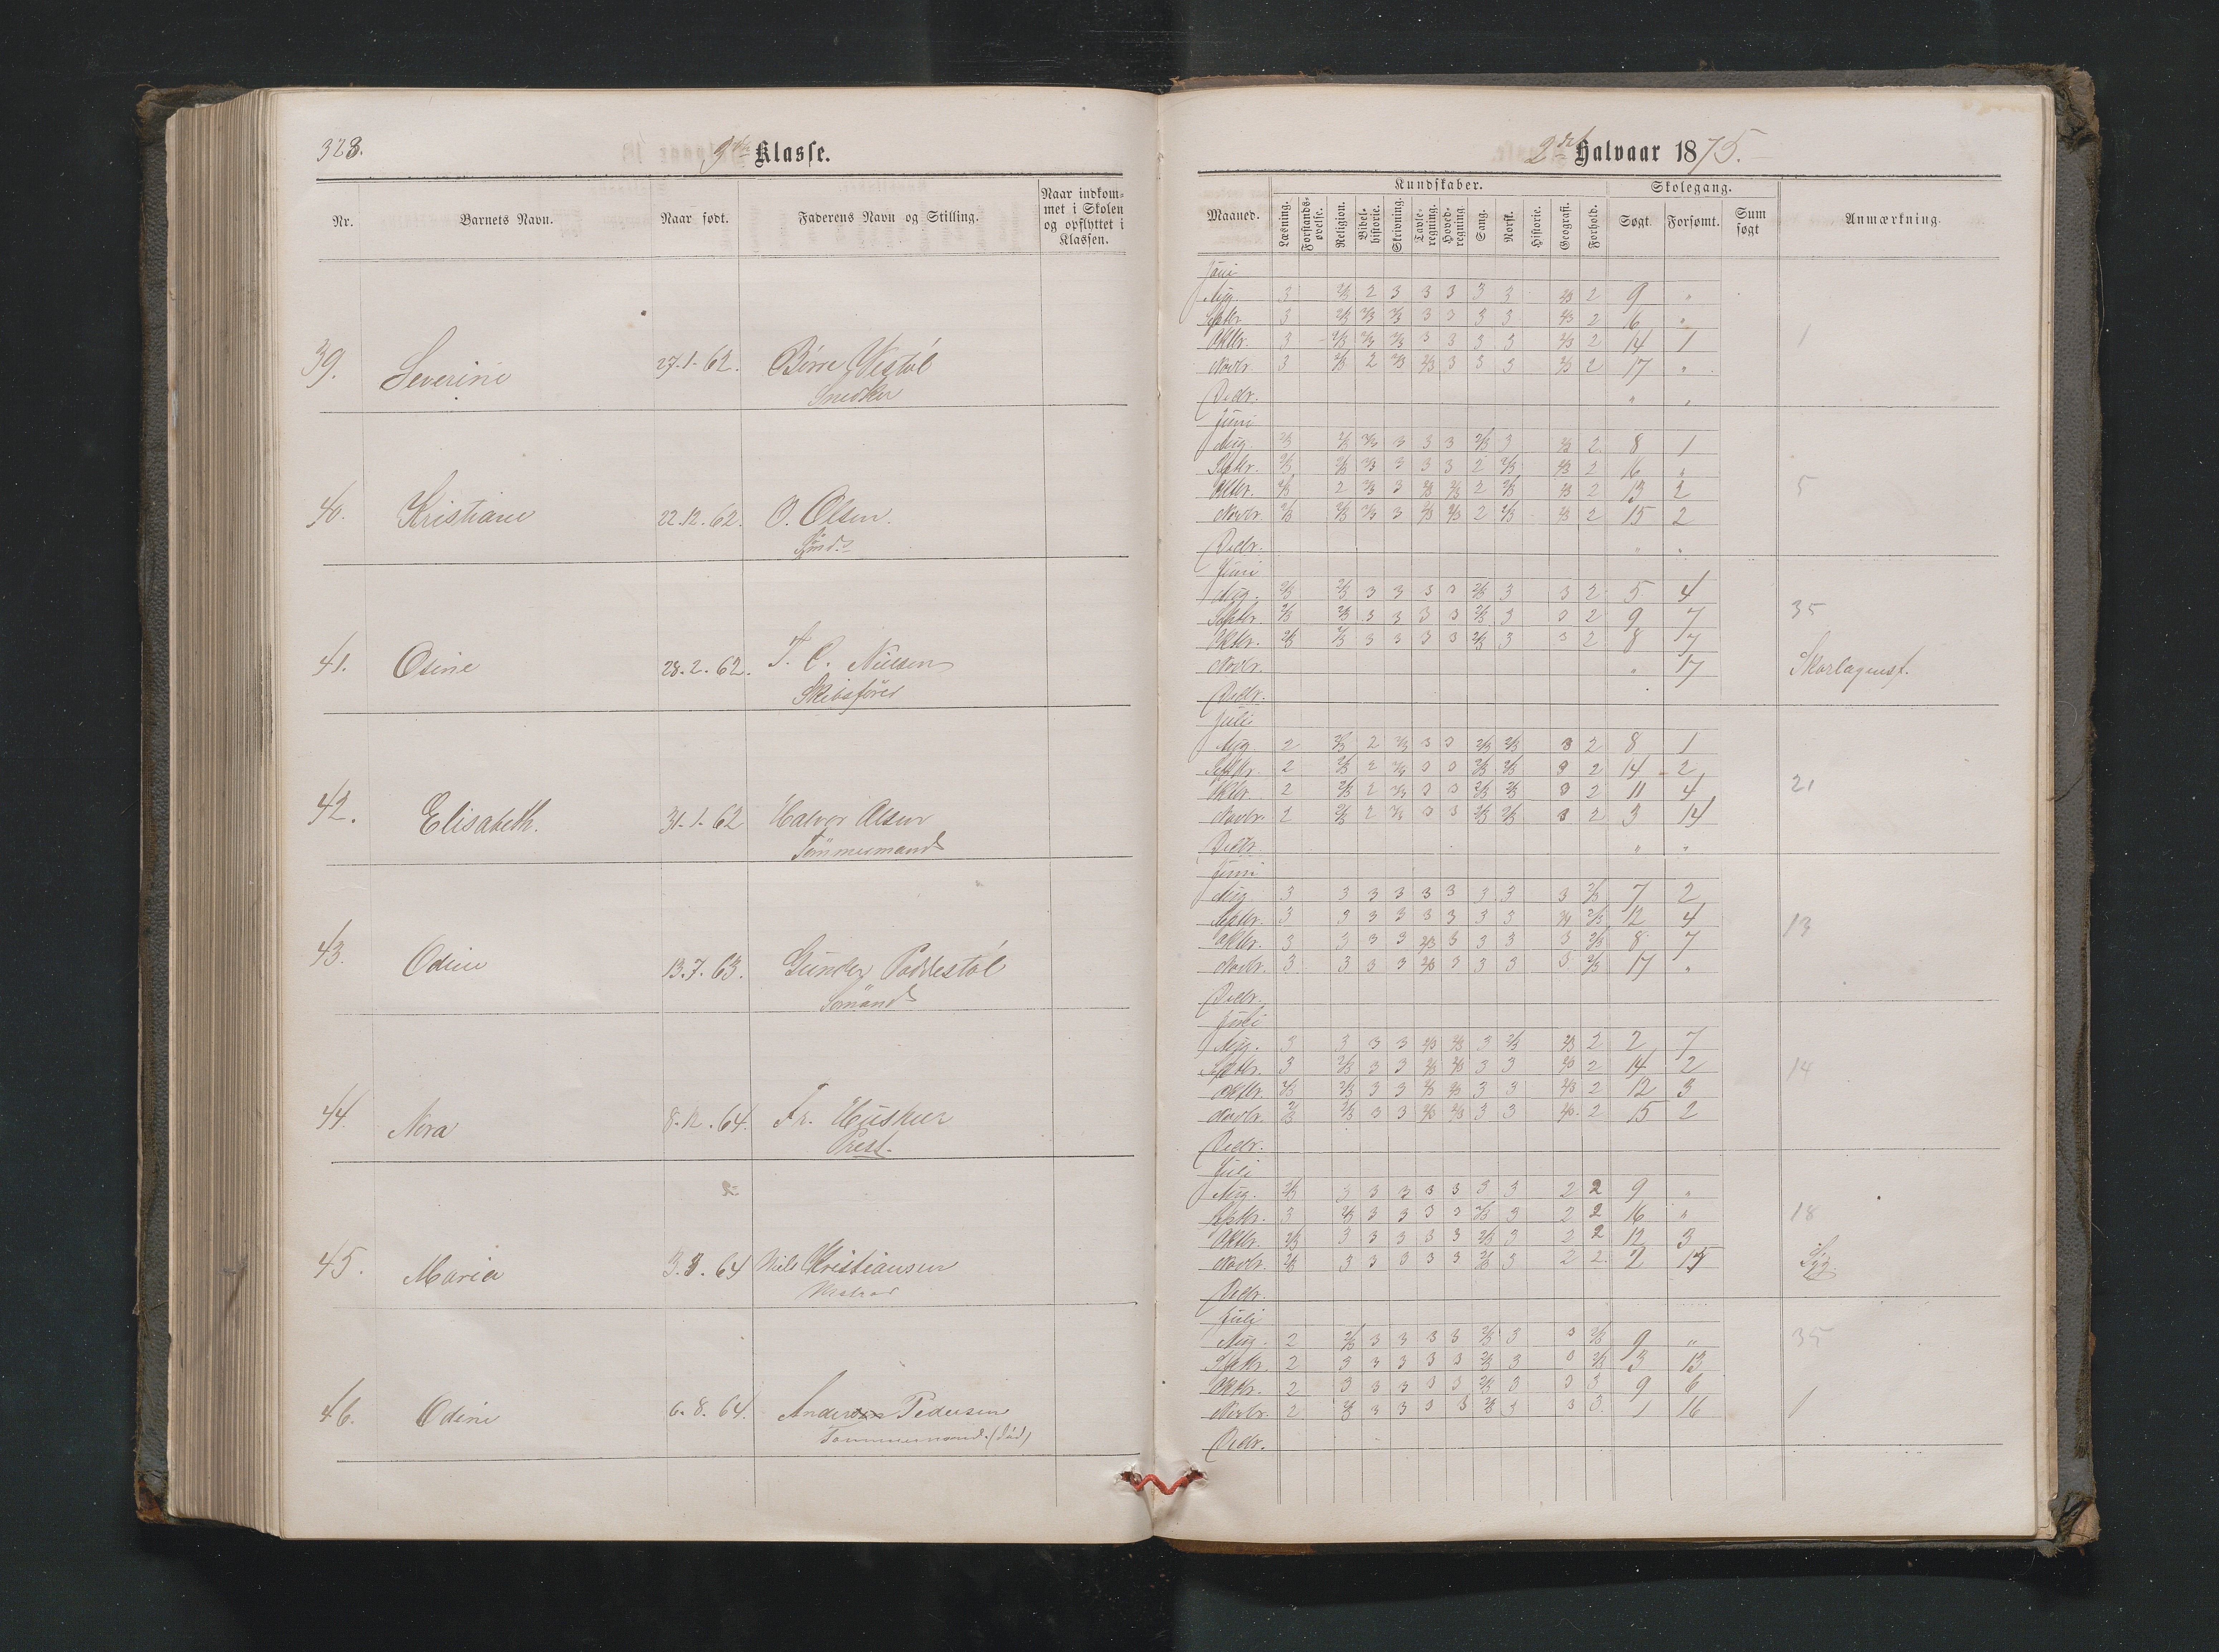 328.
Klasse.
Nr.
Barnets Navn.
Naar født.
Faderens Navn og Stilling.
Naar indkom-
met i Skolen
og opflyttet i
Klassen.
39.
Severine
27.1.62.
Børre Vestøl
Snedker
40.
Kristiane
22.12.62.
O. Olsen.
41.
Osine
28.2.62.
T. C. Nielsen
Skibsfører
42.
Elisabeth.
31.1.62
Halvor Olsen
Tømmermand
43.
Odine
13.7.63.
Gunder Poddestøl
Sømand
44.
Nora
8.12.64.
Fr.
Prest.
45.
Maria
3.8.64
Niels Kristiansen
46.
Odine
6.8.64.
Anders Pedersen
Tømmermand. (død)
2det Halvaar 1875.
Maaned.
Kundskaber.
Skolegang.
Anmærkning.
Læsning.
Forstands-
øvelse.
Religion.
Bibel-
historie.
Skrivning.
Tavle-
regning.
Hoved-
regning.
Sang.
Norsk.
Historie.
Geografi.
Forhold.
Søgt.
Forsømt.
Sum
søgt
Juni
Aug. 3 2/3 2 3 3 3 3 3 2/3 2 9 "
Septbr. 3 2/3 2/3 2/3 3 3 3 3 2/3 2 16 "
Oktbr. 3 2/3 2/3 2/3 3 3 3 3 2/3 2 14 1
1
Novbr. 3 2/3 2 2/3 2/3 3 3 3 2/3 2 17 "
Decbr. " "
Juni
Aug. 2/3 2/3 2/3 3 3 3 2/3 3 2/3 2 8 1
Septbr. 2/3 2/3 2/3 3 3 3 2 2/3 2/3 2 16 "
Oktbr. 2/3 2 2/3 3 2/3 2/3 2 2/3 2/3 2 13 2
5
Novbr. 2/3 2/3 2/3 3 2/3 2/3 2 2/3 2/3 2 15 2
Decbr. " "
Juni
Aug. 2/3 2/3 3 3 3 3 2/3 3 3 2 5 4
35
Septbr. 2/3 2/3 3 3 3 3 2/3 3 3 2 9 7
Oktbr. 2/3 2/3 3 3 3 3 2/3 3 3 2 8 7
Novbr. " 17
Skarlagensf.
Decbr.
Juli
Aug. 2 2/3 2 2/3 3 3 2/3 2/3 3 2 8 1
Septbr. 2 2/3 2 2/3 3 3 2/3 2/3 3 2 14 2
Oktbr. 2 2/3 2 2/3 3 3 2/3 2/3 3 2 11 4
21
Novbr. 2 2/3 2 2/3 3 3 2/3 2/3 3 2 3 14
Decbr. " "
Juni
Aug. 3 3 3 3 3 3 3 3 3 2/3 7 2
Septbr. 3 3 3 3 3 3 3 3 2/3 2/3 12 4
13
Oktbr. 3 3 3 3 2/3 3 3 3 3 2/3 8 7
Novbr. 3 3 3 3 2/3 3 3 3 3 2/3 17 "
Decbr.
Juli
Aug. 3 3 3 3 2/3 2/3 3 2/3 2/3 2 2 7
Septbr. 3 2/3 3 3 2/3 2/3 3 3 2/3 2 14 2
14
Oktbr. 2/3 2/3 3 3 2/3 2/3 3 3 2/3 2 12 3
Novbr. 2/3 2/3 3 3 2/3 2/3 3 3 2/3 2 15 2
Decbr.
Juli
Aug. 2/3 3 3 3 3 3 3 3 2 2 9 "
Septbr. 3 2/3 3 3 3 3 2/3 3 2 2 16 "
18
Oktbr. 2/3 3 3 3 3 3 2/3 3 2 2 12 3
Novbr. 2/3 3 3 3 3 3 2/3 3 2 2 2 15
Syg.
Decbr.
Juli
Aug. 2 2/3 3 3 3 3 2/3 3 3 2/3 9 "
35
Septbr. 2 3 3 3 3 3 2/3 3 3 2/3 3 13
Oktbr. 2 3 3 3 3 3 2/3 3 3 3 9 6
Novbr. 2 2/3 3 3 3 3 2/3 3 3 3 1 16
1
Decbr.